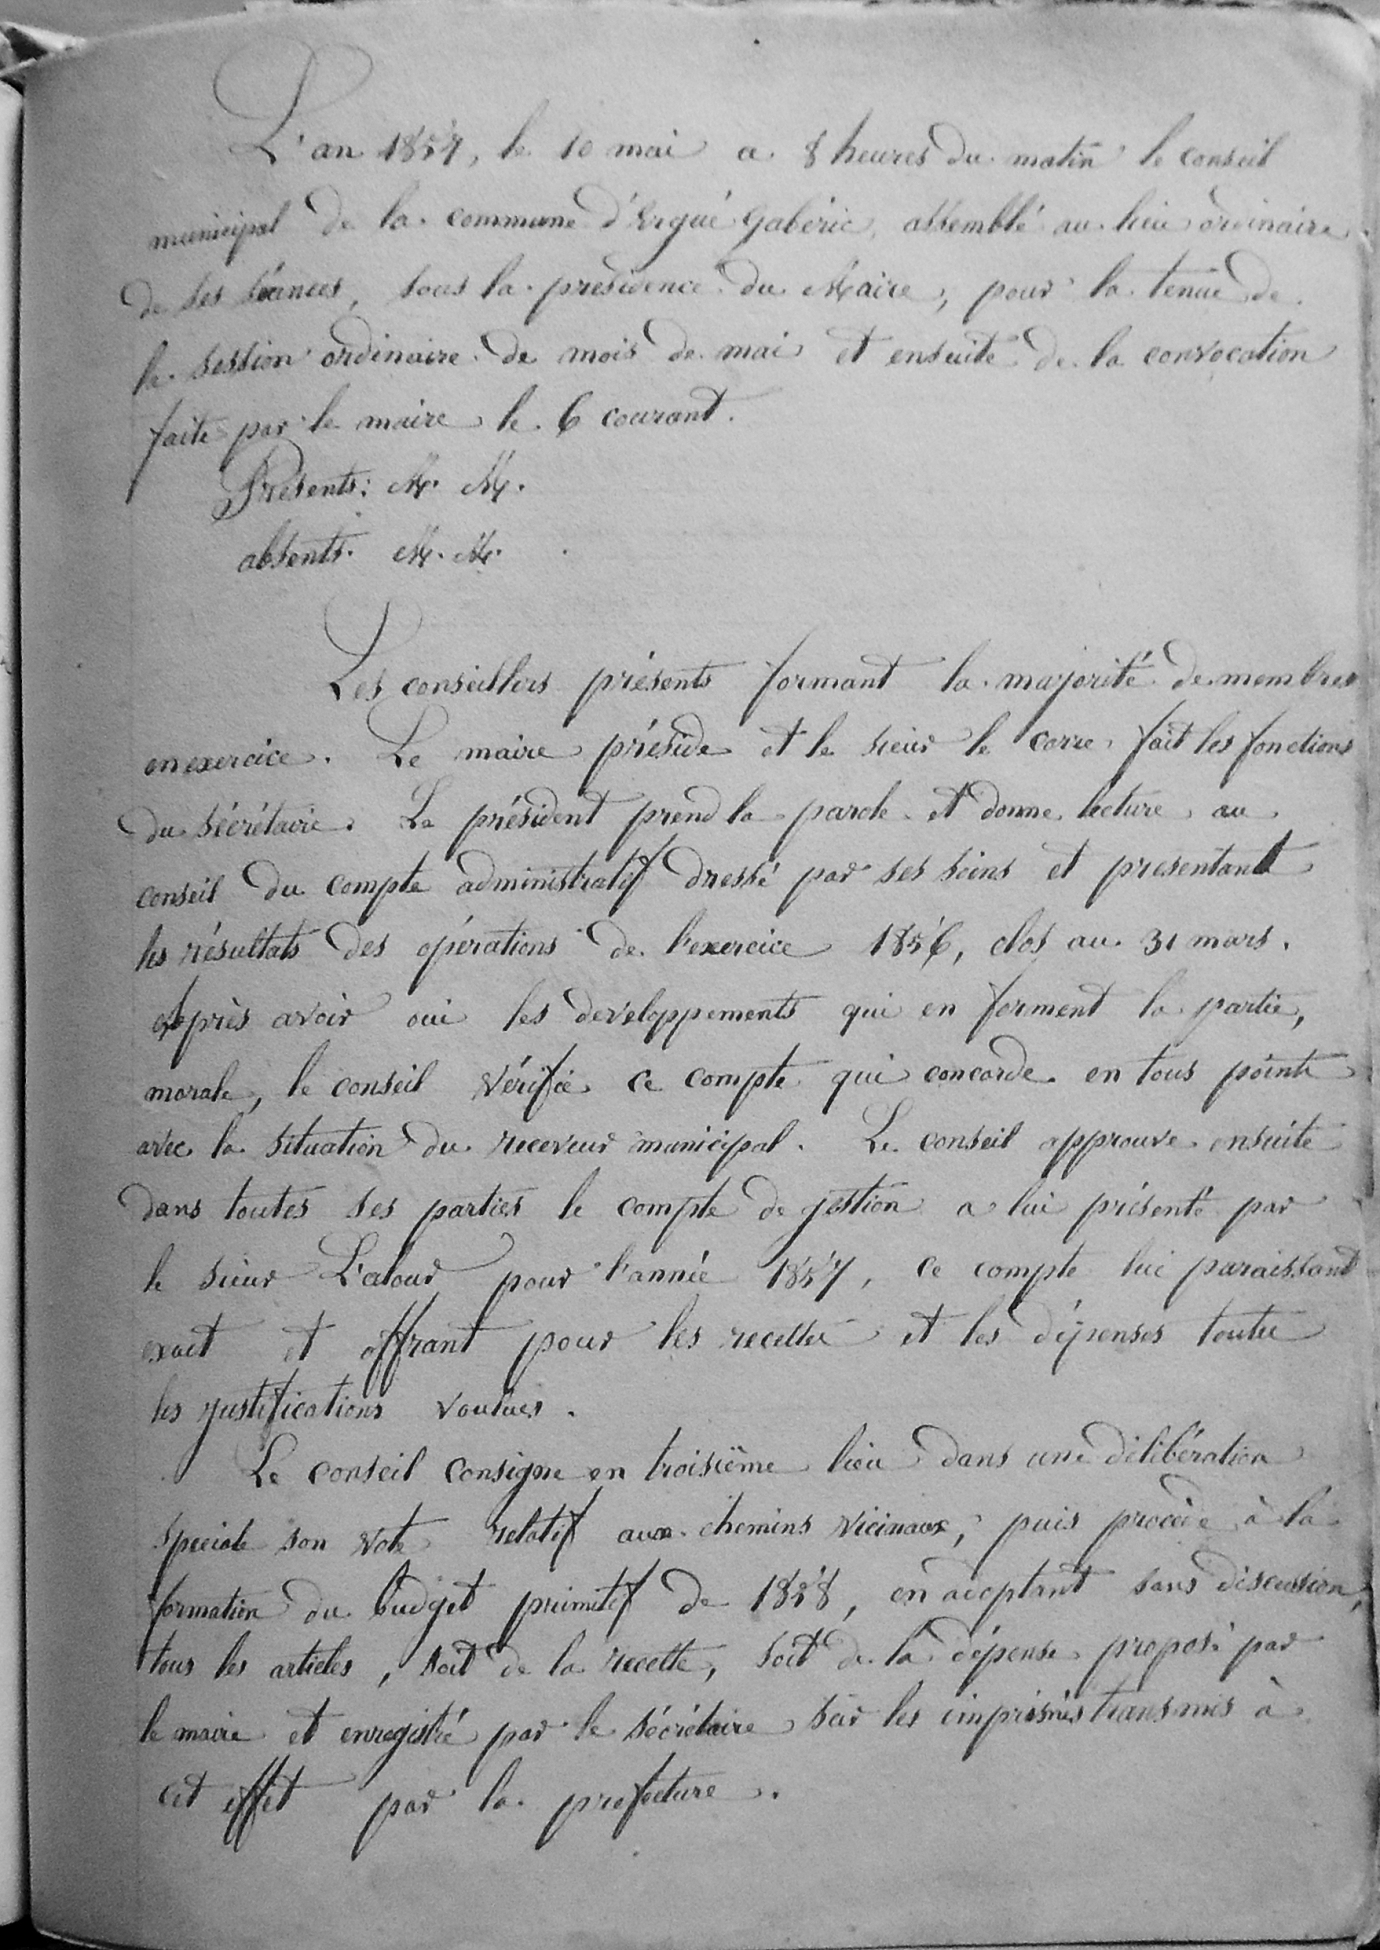 L'an 1857, le 10 mai a 8 heures du matin le conseil
municipal de la commune d'Ergué Gabéric, assemblé au lieu ordinaire
de ses séances, sous la présidence du Maire, pour la tenue de
la session ordinaire de mois de mai et ensuite de la convocation
faite par le maire le 6 courant.
Présents: M. M.
absents. M. M.
Les conseillers présents formant la majorité de membres
en exercice. Le maire préside et le sieur le corre fait les fonctions
du sécrétaire. Le président prend la parole et donne lecture au
conseil du compte administratif dressé par ses soins et presentant
les résultats des opérations de l'exercice 1856, clos au 31 mars.
Après avoir oui les developpements qui en forment la partie,
morale, le conseil vérifie ce compte qui concorde en tous points
avec la situation du receveur municipal. Le conseil approuve ensuite
dans toutes ses parties le compte de gestion a lui présenté par
le sieur L'alour pour l'année 1857, ce compte lui paraissant
exact et offrant pour les recettes et les dépenses toutes
les justifications voulues.
Le conseil consigne en troisième lieu dans une délibération
speciale son vote relatif aux chemins vicinaux, puis procède à la
formation du budget primitif de 1858, en adoptant sans discussion,
tous les articles, soit de la recette, soit de la dépense proposé par
le maire et enregistré par le sécrétaire sur les imprimés transmis à
cet effet par la prefecture.